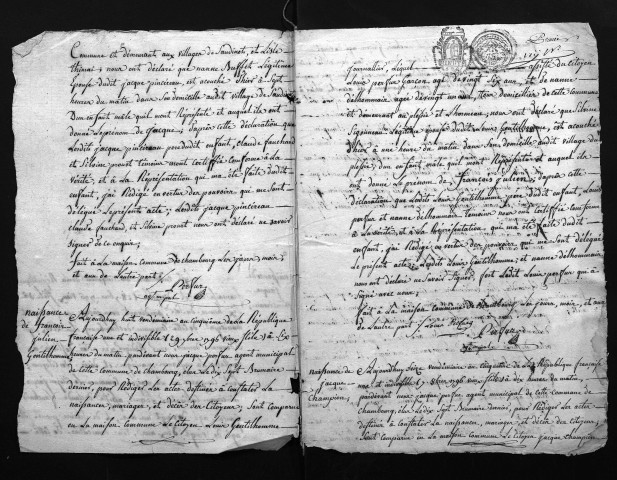 Commune et demeurant aux villages de Sandinet, et L'isle
Thimai; nous ont déclaré que nanne Buffet Légitime
épouse dudit jacque pintereau est acouchée Hier à Sept
heures du matin dans Son domicille audit village de Sandinet
D'un enfant mâle quil mont Représenté et auquel ils ont
donné Le prénom de Jacque; d'après cette déclaration que
Ledit jacque pintereau pere dudit enfant, claude fouchard
et Silvine proust témoins mont certiffiée conforme à la
vérité, et à La Représentation qui ma été faite dudit
enfant, j'ai Rédigé en vertus des pouvoirs qui me Sont
délégués Le présent acte; Lesdits jacque pintereau
claude fouchard, et Silvine proust nous ont déclaré ne Savoir
Signer de ce enquis;
fait à La maison commune de chambourg Les jour, mois;
et an de L'autre part
naissance
de
francois
julien
Gentilhomme
Aujourdhuy huit vendemiaire an cinquieme de la République
française une et indivisible (29 7bre 1796 vieux stile) à six
heures du matin pardevant nous jacque perfus agent municipal
de cette commune de chambourg, élu Le dix Sept Brumaire
dernier, pour Rédiger Les actes destinés à constater La
naissance, mariages, et décès des Citoyens; Sont comparu
en La maison commune Le Citoyen Louis Gentilhomme
journallier, Lequel assisté du citoyen
Louis perfus Garçon agé de vingt Six ans et de nanne
delhommais agée de vingt un ans, tous domiciliés de cette commune
et demeurant au plessis et Lhommeau, nous ont déclaré que Silvine
Sigoineau Legitime épouse dudit Louis Gentilhomme, est acouchée
Hier à une heure du matin dans Son domicille audit village du
plessis, d'un enfant mâle quil mont Représenté et auquel ils
ont donné Le prénom de François julien; d'après cette
déclaration que Lesdits Louis Gentilhomme pere dudit enfant, Louis
perfus et nanne delhommais témoins nous ont certiffiée conforme
à La vérité, et à La Représentation qui ma été faite dudit
enfant, j'ai Rédigé en vertus des pouvoirs qui me sont délégués
Le présent acte; Ledit Louis Gentilhomme, et nanne delhommais
nous ont déclaré ne Savoir Signer, fors Ledit Louis perfus qui à
Signé avec nous;
fait à La maison commune de Chambourg Les jour, mois, et an
de L'autre part
naissance de
jacque
Champion,
Aujourdhuy Seize vendemiaire an cinquieme de La République française
une et indivisible (7 8bre 1796 vieux stile) à dix heures du matin,
pardevant nous jacque perfus agent municipal de cette commune de
chambourg, élu Le dix Sept Brumaire dernier, pour Rédiger Les actes
destinés à constater La naissance, mariages, et décès des citoyens;
Sont comparu en La maison commune Le Citoyen jacque champion